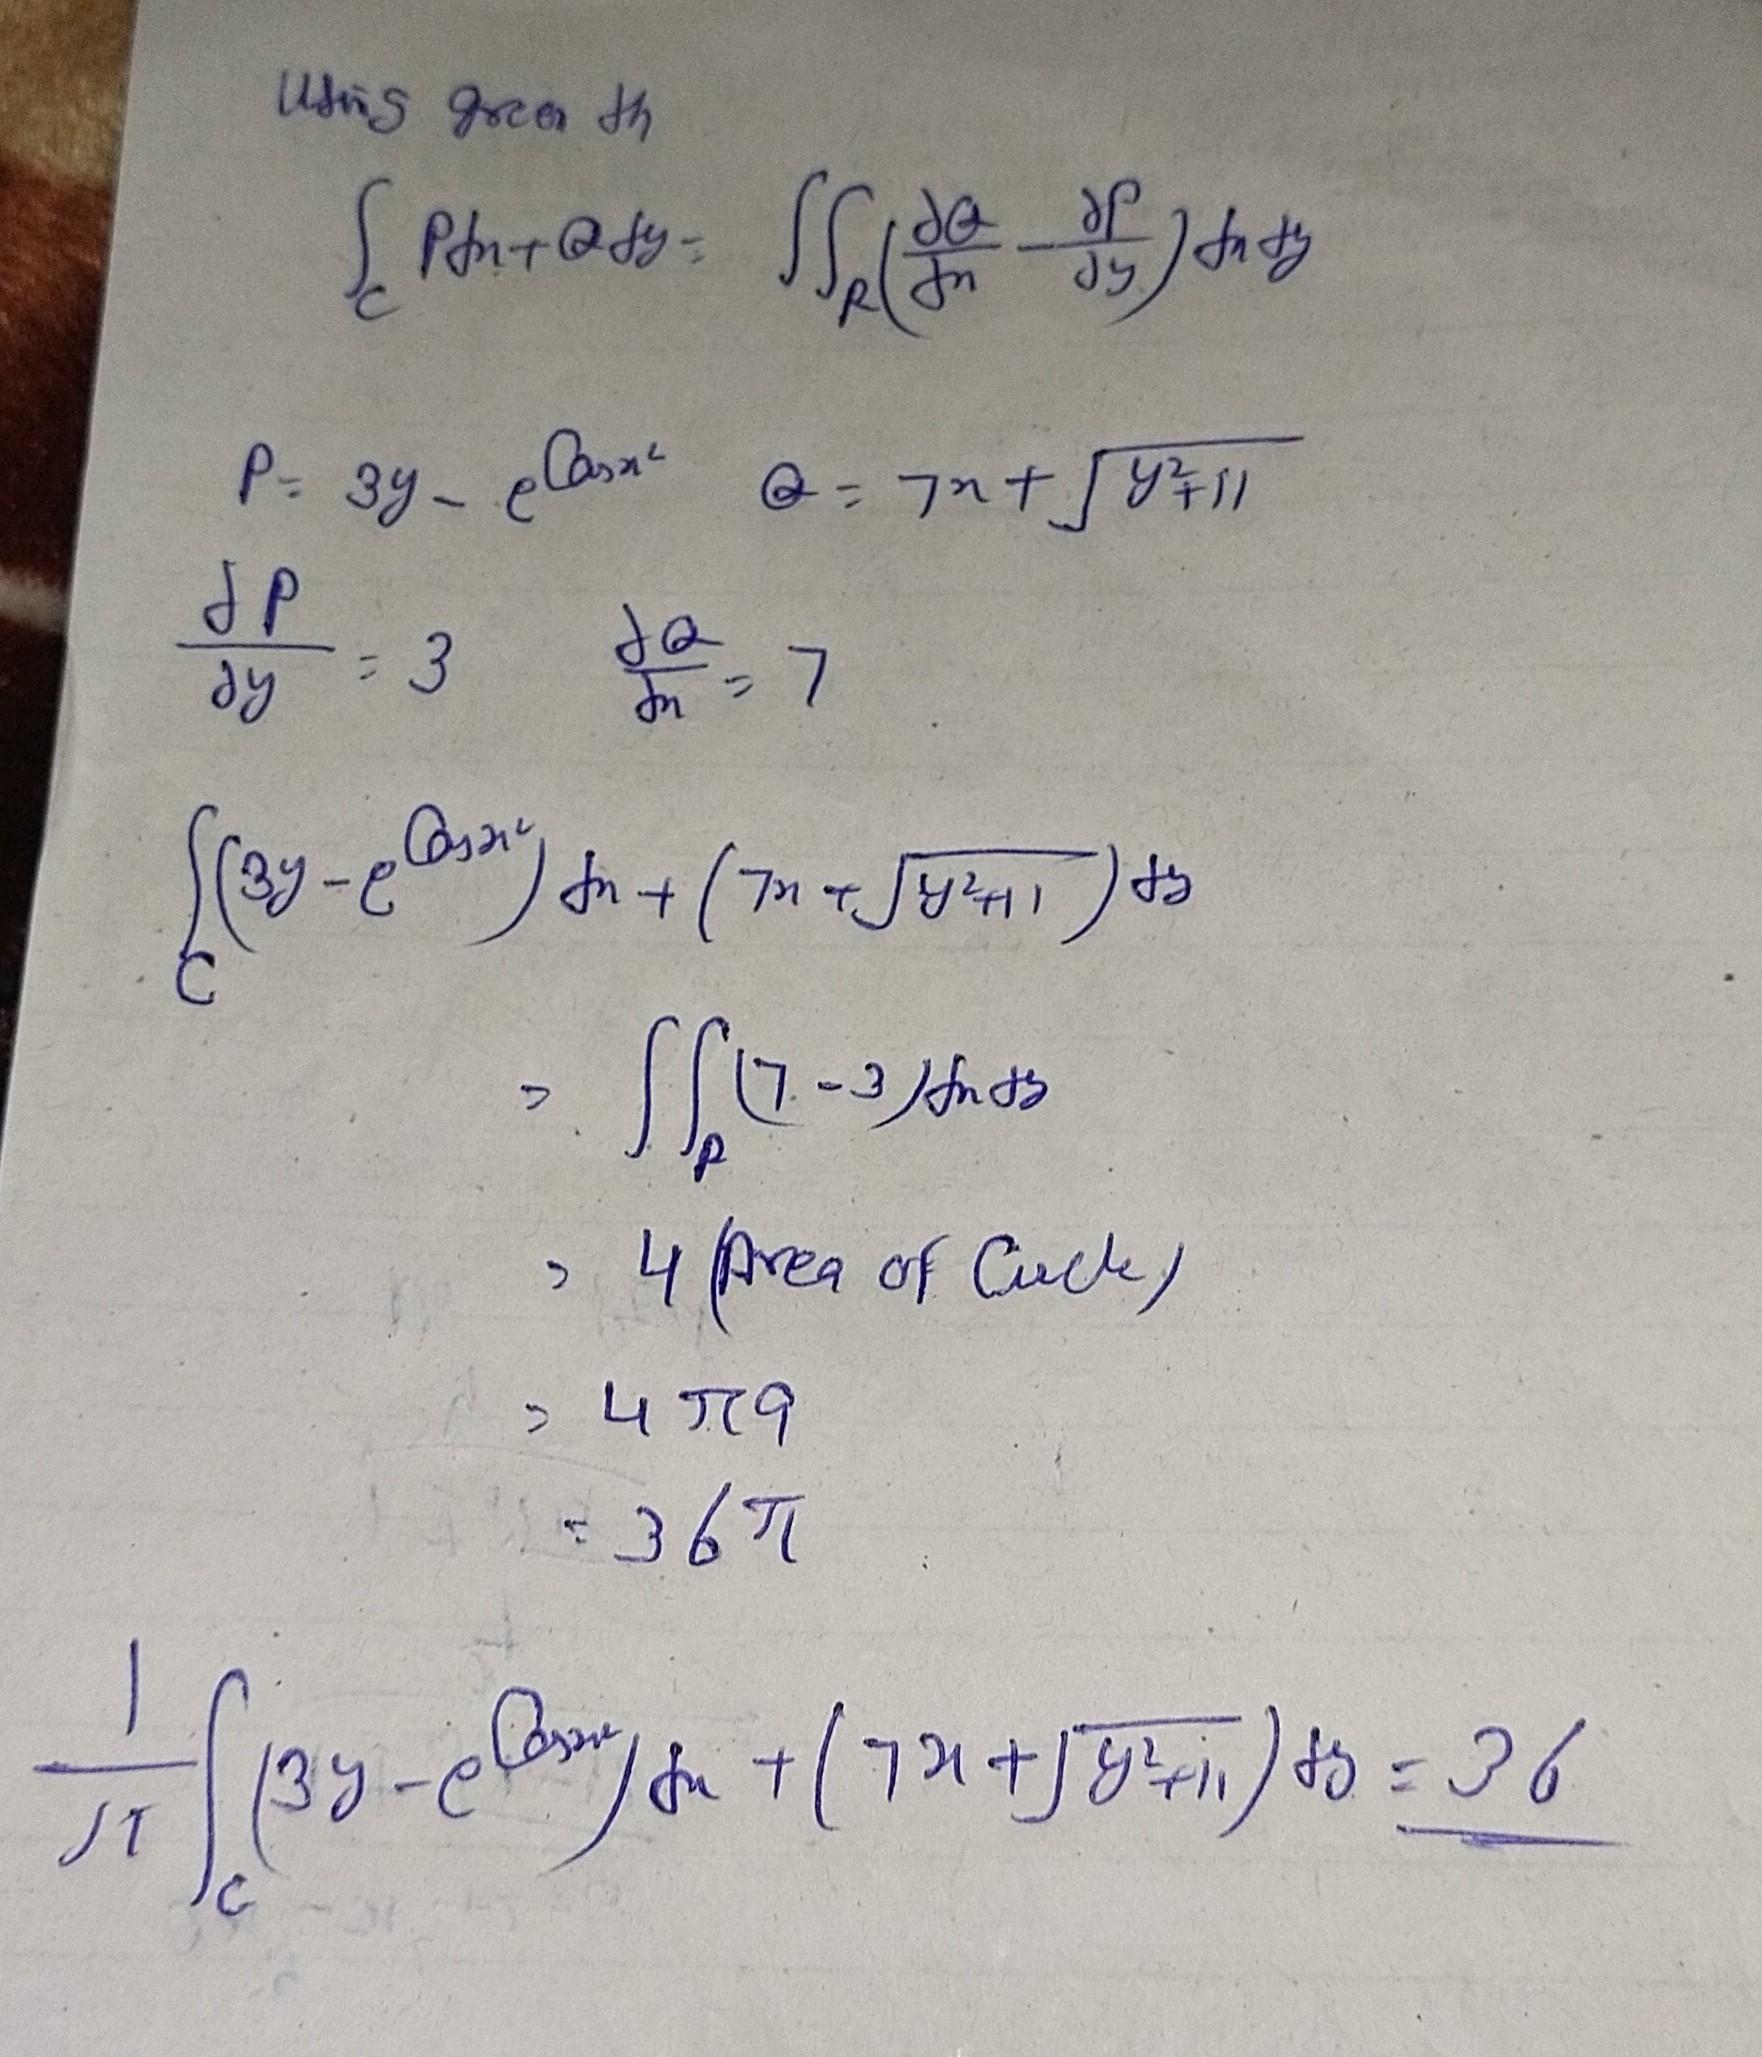 Using green th
∫_C Pdx+Qdy = ∫∫_R (∂Q/∂x - ∂P/∂y) dxdy
P = 3y - e^{Cosx²} Q = 7x + √(y²+11)
∂P/∂y = 3 ∂Q/∂x = 7
∫_C (3y - e^{Cosx²}) dx + (7x + √(y²+11)) dy
= ∫∫_R (7-3) dxdy
= 4 (Area of Circle)
= 4π9
= 36π
1/π ∫_C (3y - e^{Cosx²}) dx + (7x + √(y²+11)) dy = 36